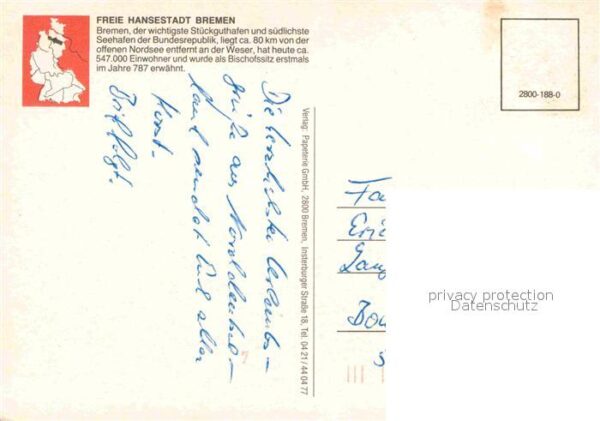 FREIE HANSESTADT BREMEN
Bremen, der wichtigste Stückguthafen und südlichste
Seehafen der Bundesrepublik, liegt ca. 80 km von der
offenen Nordsee entfernt an der Weser, hat heute ca.
547.000 Einwohner und wurde als Bischofssitz erstmals
im Jahre 787 erwähnt.
2800-188-0
Die herzlichsten Urlaubs-
grüße aus Norddeutsch-
land sendet Euch allen
Horst.
Brief folgt!
Verlag: Papeterie GmbH, 2800 Bremen, Insterburger Straße 18, Tel. 04 21 / 44 04 77
Fa
Eri
privacy protection
Datenschutz